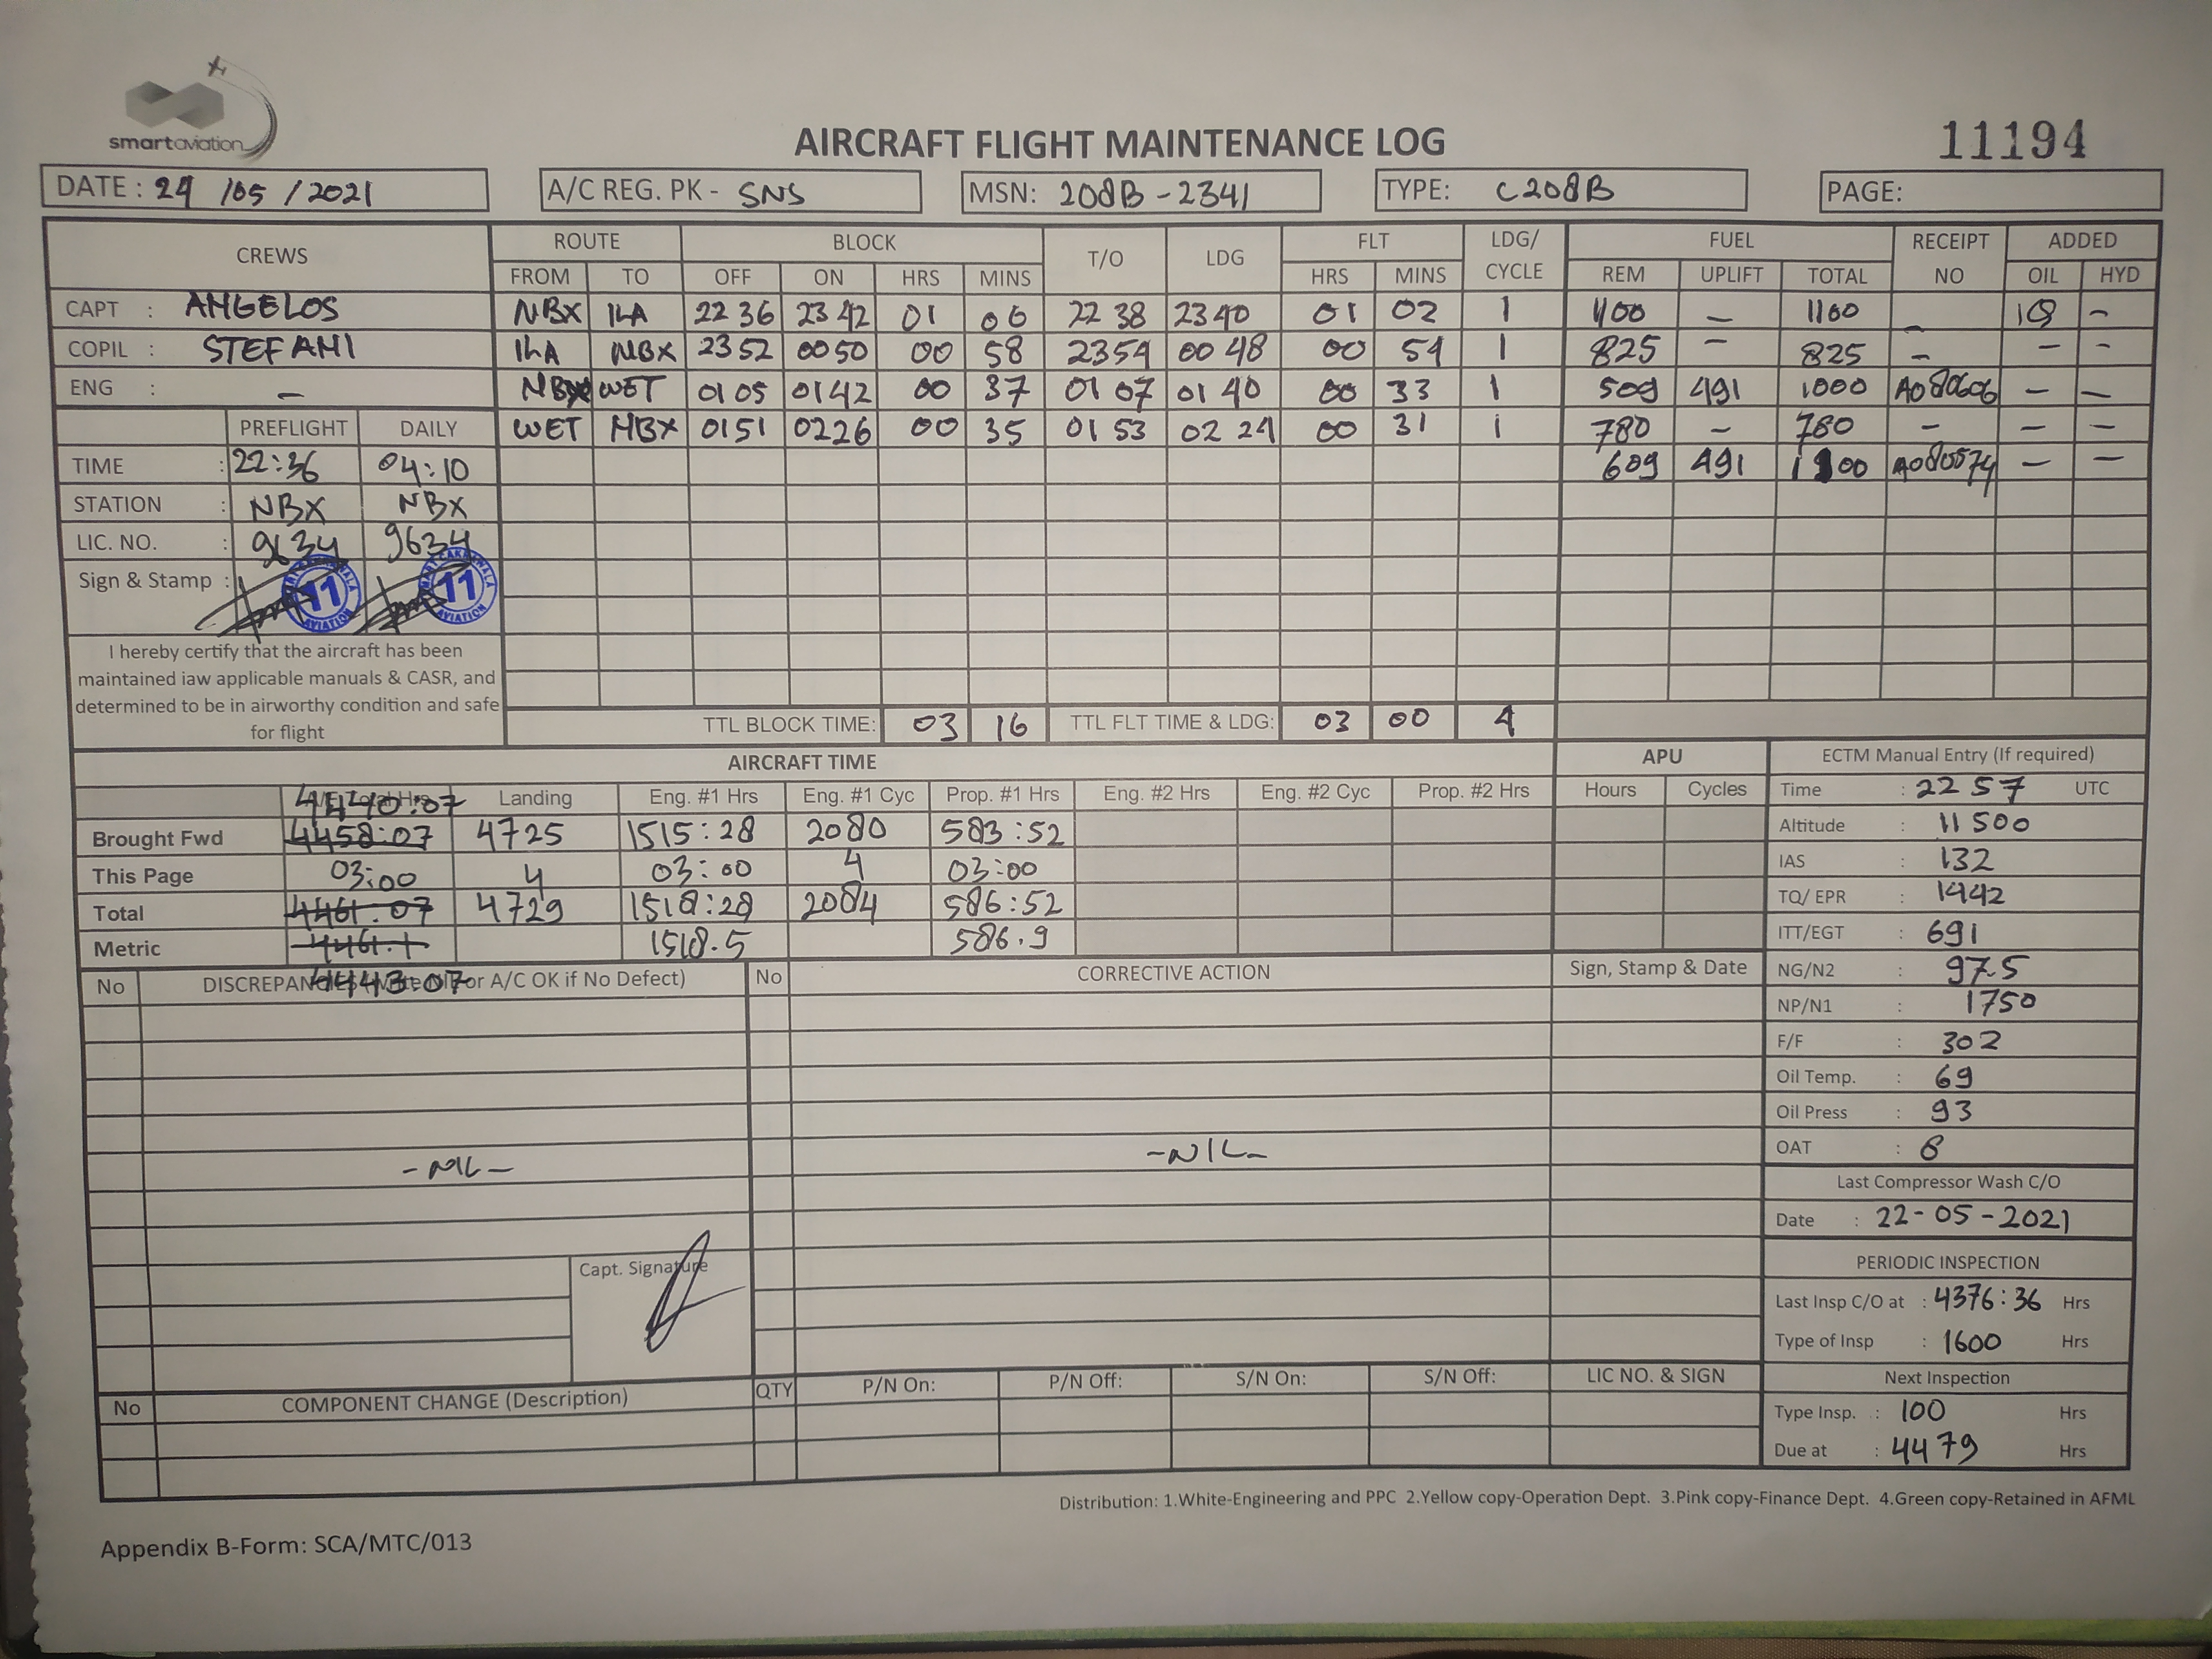 smartaviation
AIRCRAFT FLIGHT MAINTENANCE LOG
11194
DATE : 24 /05 / 2021 A/C REG. PK - SNS MSN: 208B - 2341 TYPE: C208B PAGE:
CREWS ROUTE BLOCK T/O LDG FLT LDG/ CYCLE FUEL RECEIPT NO ADDED
FROM TO OFF ON HRS MINS HRS MINS REM UPLIFT TOTAL OIL HYD
CAPT : ANGELOS NBX ILA 22 36 23 42 01 06 22 38 23 40 01 02 1 1100 – 1100 – 1Q –
COPIL : STEFANI ILA NBX 23 52 00 50 00 58 2354 00 48 00 54 1 825 – 825 – – –
ENG : – NBX WET 01 05 01 42 00 37 01 07 01 40 00 33 1 509 491 1000 A080606 – –
PREFLIGHT DAILY WET NBX 0151 0226 00 35 01 53 02 24 00 31 1 780 – 780 – – –
TIME : 22:36 04:10 609 491 1100 A080574 – –
STATION : NBX NBX
LIC. NO. : 9634 9634
Sign & Stamp : 11 AVIATION 11 AVIATION
I hereby certify that the aircraft has been
maintained iaw applicable manuals & CASR, and
determined to be in airworthy condition and safe
for flight
TTL BLOCK TIME: 03 16 TTL FLT TIME & LDG: 03 00 4
AIRCRAFT TIME APU ECTM Manual Entry (If required)
A/F Total Hrs Landing Eng. #1 Hrs Eng. #1 Cyc Prop. #1 Hrs Eng. #2 Hrs Eng. #2 Cyc Prop. #2 Hrs Hours Cycles Time : 22 57 UTC
4440:07
Brought Fwd 4458:07 4725 1515:28 2080 583:52 Altitude : 11 500
This Page 03:00 4 03:00 4 03:00 IAS : 132
Total 4461:07 4729 1518:28 2084 586:52 TQ/ EPR : 1442
Metric 4461.1 1518.5 586.9 ITT/EGT : 691
4443:07
No DISCREPANCIES (Write NIL or A/C OK if No Defect) No CORRECTIVE ACTION Sign, Stamp & Date NG/N2 : 97.5
NP/N1 : 1750
F/F : 302
Oil Temp. : 69
Oil Press : 93
- NIL - - NIL - OAT : 8
Last Compressor Wash C/O
Date : 22-05-2021
Capt. Signature PERIODIC INSPECTION
Last Insp C/O at : 4376:36 Hrs
Type of Insp : 1600 Hrs
No COMPONENT CHANGE (Description) QTY P/N On: P/N Off: S/N On: S/N Off: LIC NO. & SIGN Next Inspection
Type Insp. : 100 Hrs
Due at : 4479 Hrs
Distribution: 1.White-Engineering and PPC 2.Yellow copy-Operation Dept. 3.Pink copy-Finance Dept. 4.Green copy-Retained in AFML
Appendix B-Form: SCA/MTC/013